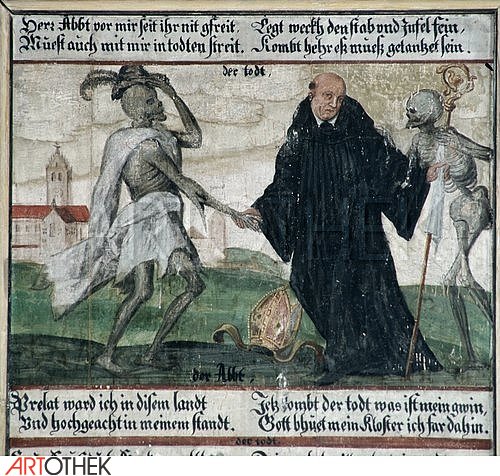 Herr Abbt vor mir seit ihr nit gfreit,
Müest auch mit mir in todten streit.
Legt weckh den stab vnd Jnfel fein,
Kombt hehr eß müeß getantzet sein.
der todt,
der Abbt,
Prelat ward ich in disem landt
Vnd hochgeacht in meinem standt.
Jetz kombt der todt was ist mein gwin,
Gott bhüet mein Kloster ich far dahin.
der todt.
ARTOTHEK